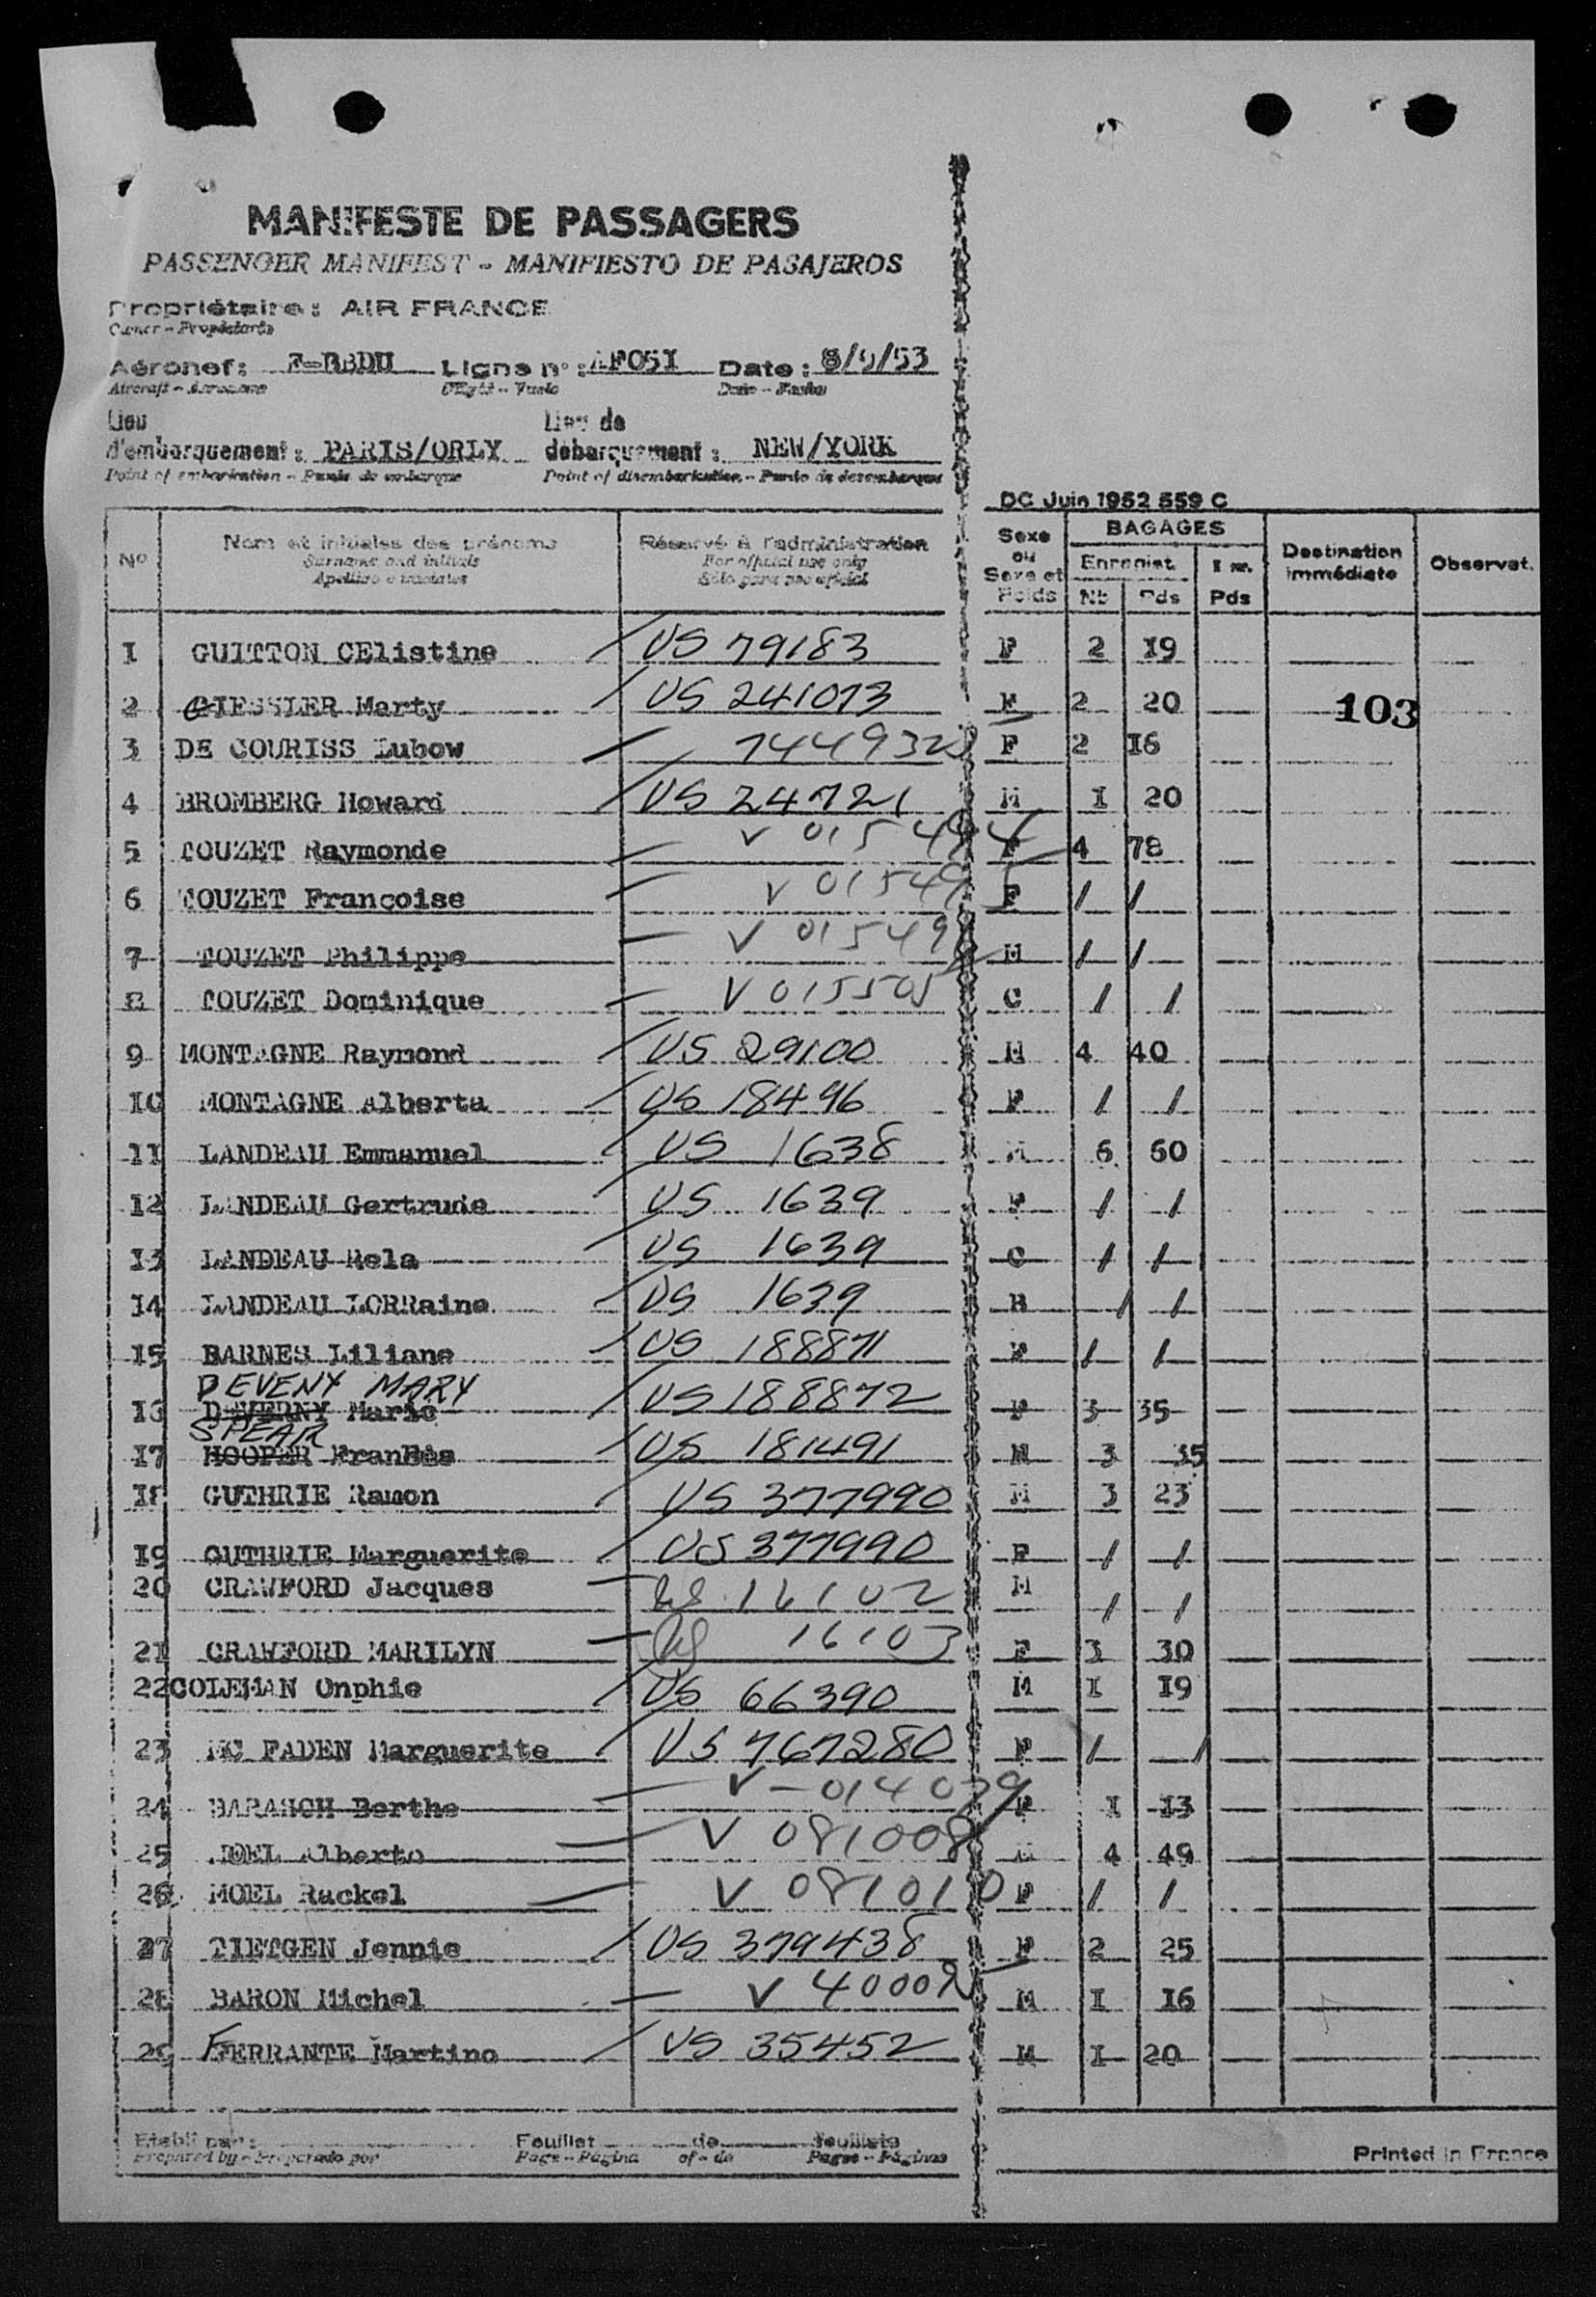 MANIFESTE DE PASSAGERS
PASSENGER MANIFEST - MANIFIESTO DE PASAJEROS
Propriétaire : AIR FRANCE
Owner - Propietario
Aéronef : F-BBDU Ligne n° : AF051 Date : 8/9/53
Lieu d'embarquement : PARIS/ORLY Lieu de débarquement : NEW/YORK
Point of embarkation - Punto de embarque Point of disembarkation - Punto de desembarque
DC Juin 1952 559 C
N° Nom et initiales des prénoms Réservé à l'administration Sexe ou Sexe et Poids BAGAGES Enregist. Nb Pds Pds Destination immédiate Observat.
Surname and initials For official use only
Sólo para uso oficial
I GUITTON CElistine / US 79183 F 2 I9
2 GIESSLER Marty / US 241073 F 2 20 103
3 DE COURISS Lubow 744932 F 2 I6
4 BROMBERG Howard / US 24721 M I 20
5 TOUZET Raymonde — V 015494 F 4 78
6 TOUZET Françoise — V 015495 F / /
7 TOUZET Philippe — V 01549 M / /
8 TOUZET Dominique — V 015505 C / /
9 MONTAGNE Raymond / US 29100 M 4 40
I0 MONTAGNE Alberta / US 18496 F / /
II LANDEAU Emmanuel / US 1638 M 6 60
I2 LANDEAU Gertrude / US 1639 F / /
I3 LANDEAU Rela / US 1639 C / /
I4 LANDEAU LORRaine / US 1639 B / /
I5 BARNES Liliane / US 188871 F / /
DEVENY MARY
I6 DEVERNY Marie / US 188872 F 3 35
SPEAR
I7 HOOPER / US 181491 3 35
I8 GUTHRIE Ramon / US 377990 M 3 23
I9 GUTHRIE Marguerite / US 377990 F / /
20 CRAWFORD Jacques — US 16102 M / /
2I CRAWFORD MARILYN — US 16103 F 3 30
22 COLEMAN Onphie / US 66390 M I I9
23 MC FADEN Marguerite / US 767280 F / /
24 BARASCH Berthe — V-014039 F I I3
25 Alberto — V 081008 M 4 49
26 MOEL Rackel — V 081010 F / /
27 TIETGEN Jennie / US 379438 F 2 25
28 BARON Michel — V 40002 M I I6
29 FERRANTE Martino / US 35452 M I 20
Etabli par : Feuillet de feuillets
Prepared by - Preparado por Page - Página of - de Pages - Páginas
Printed in France